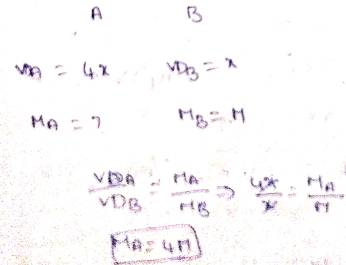 A B
VDA = 4x VDB = x
MA = ? MB = M
VDA/VDB = MA/MB ⇒ 4x/x = MA/M
MA = 4M